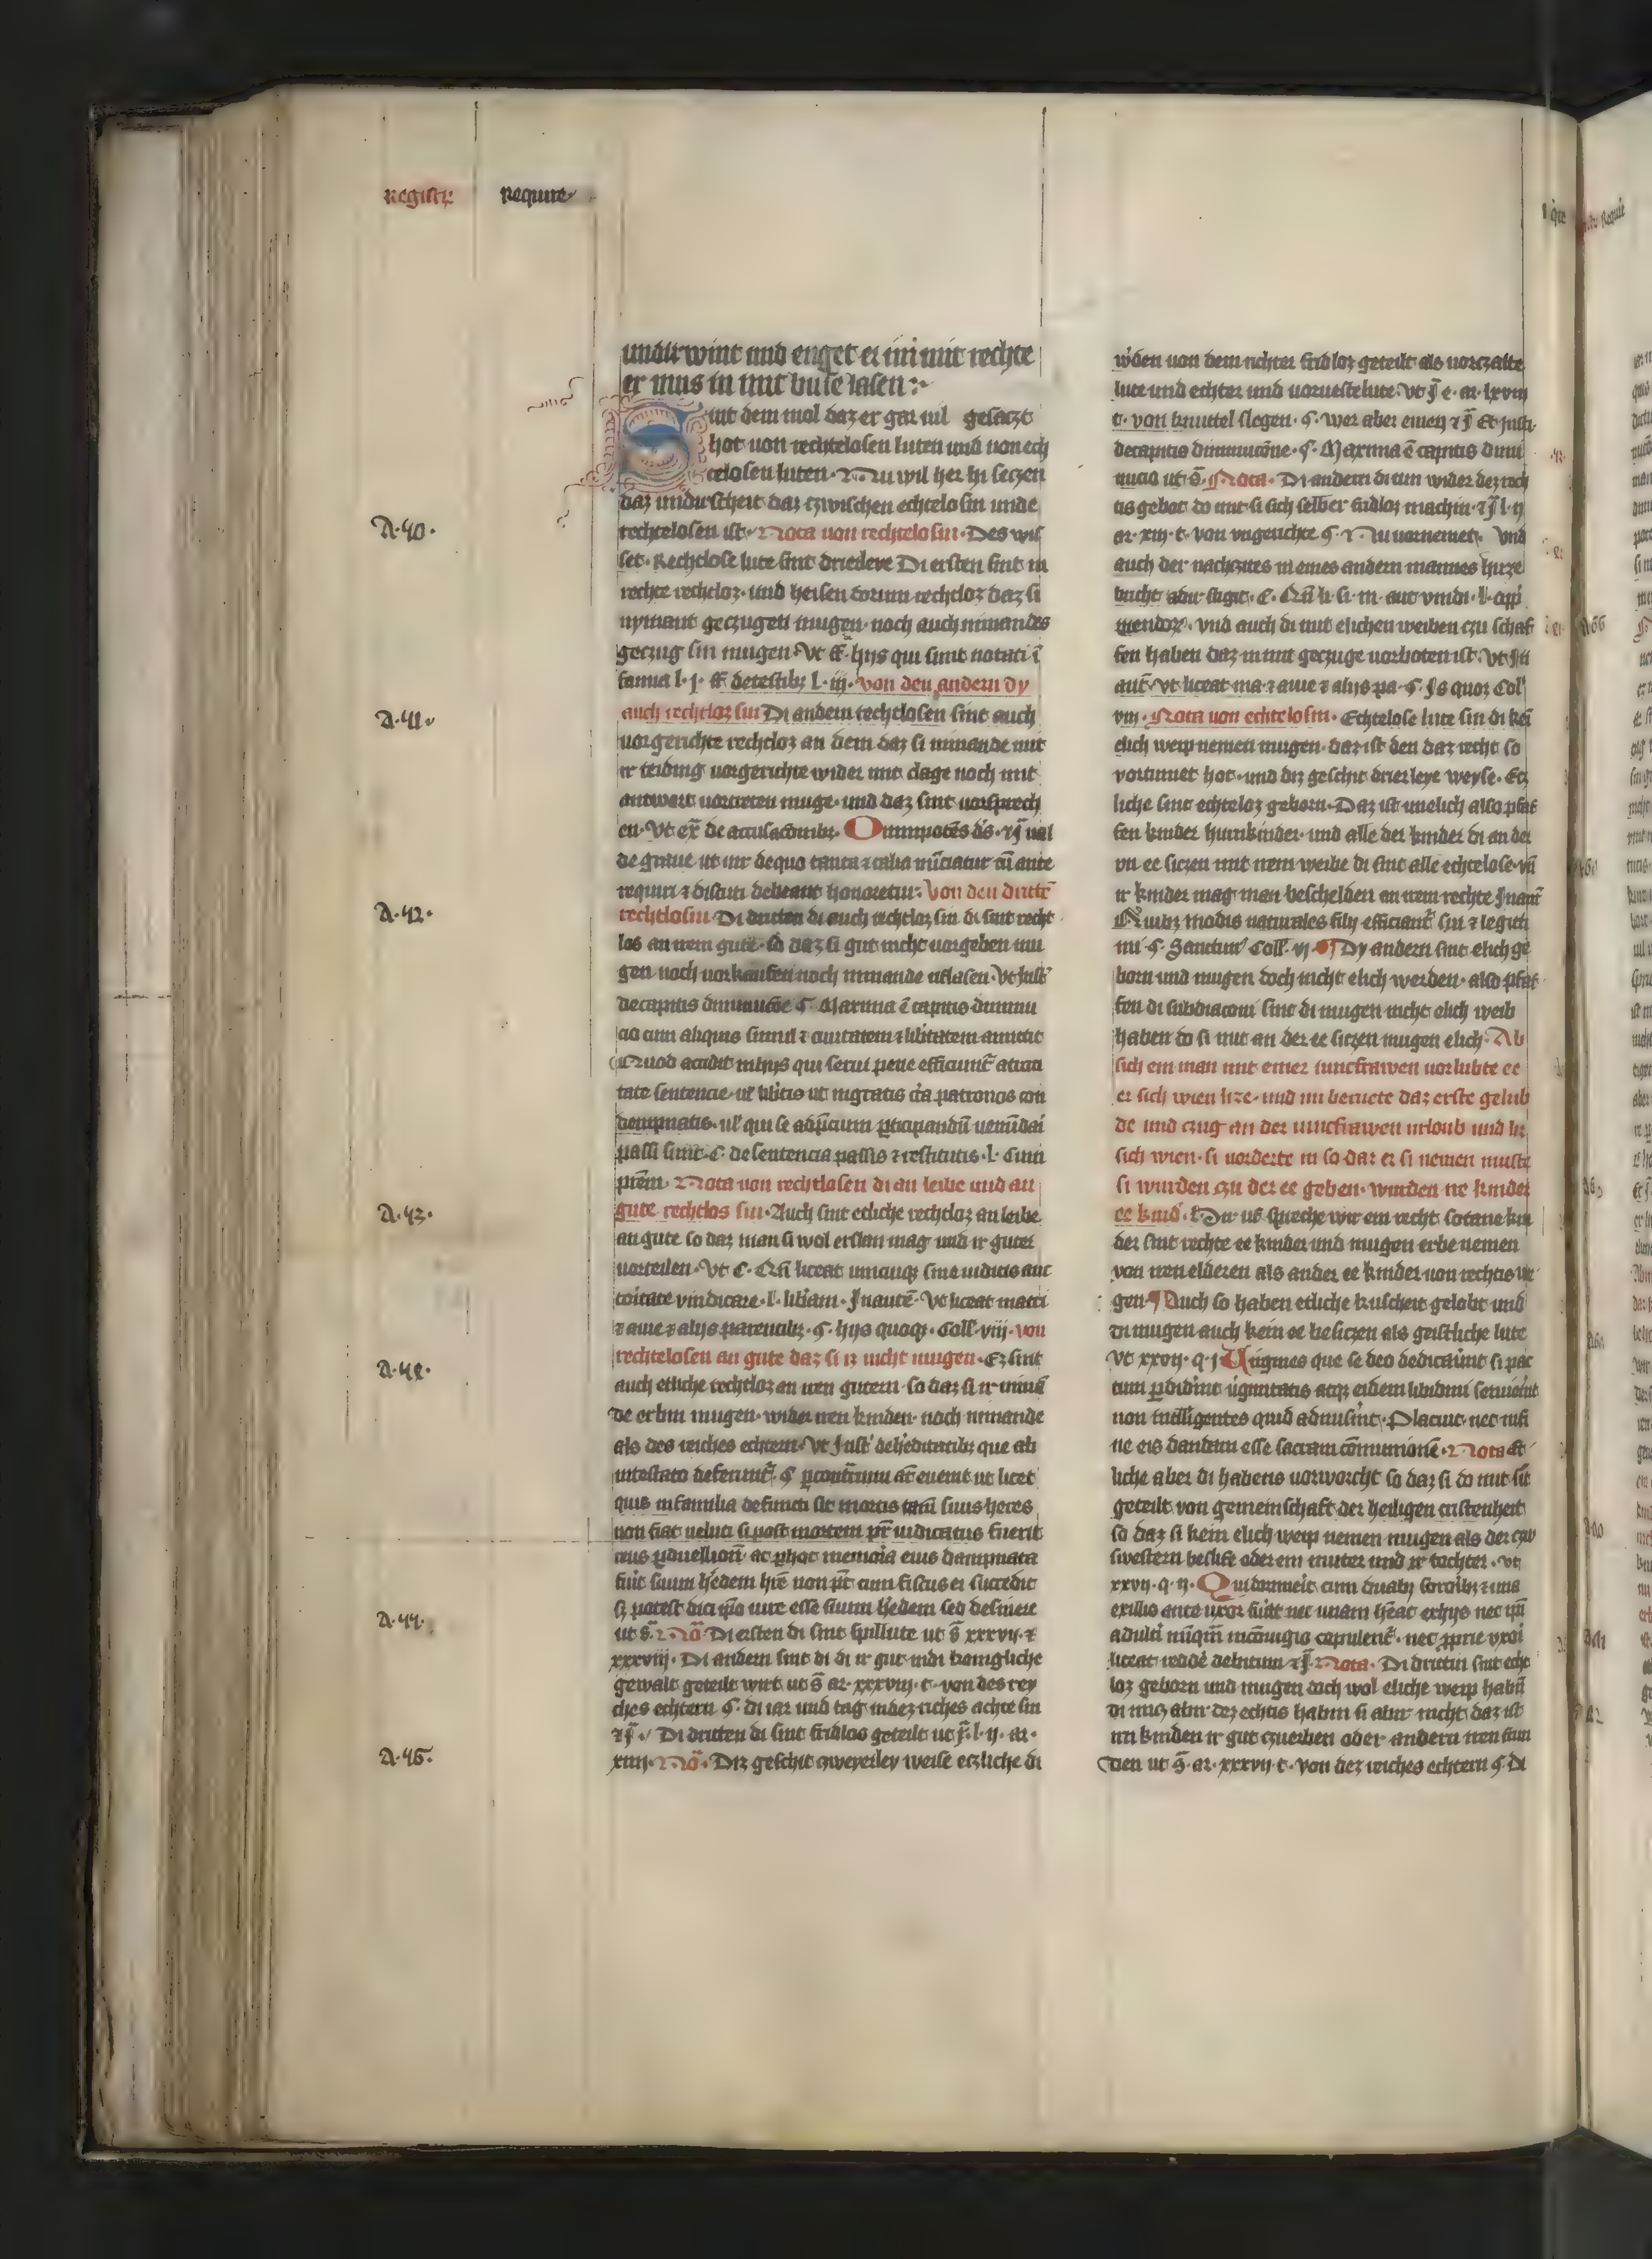 Registrum
Require
undirwint und enget er im mit rechte
er mus in mit buse lasen :
Sint dem mol daz er gar vil gesaczt
hot von rechtelosen luten und von ech
telosen luten. Nu wil her hi seczen
daz undirscheit daz czwischen echtelosin unde
A.40.
rechtelosen ist. Nota von rechtelosin. Des wis
set. Rechtlose lute sint drierleye Di ersten sint in
rechte rechtloz. und heisen dorum rechtloz daz si
nymant geczugen mugen. noch auch nimandes
geczug sin mugen. Vt ff. hijs qui sunt notati ī
famia l. j. ff de testibz l. iij. von den andern dy
A.41.
auch rechtloz sin Di andern rechtlosen sint auch
vor gerichte rechtloz an dem daz si nimande mit
ir teiding vorgerichte wider mit clage noch mit
antwert vortreten muge. und daz sint vorsprech
en. Vt ex̄ de accusacōnibz. Omnipotēs d's.
de graue ut in de quo tanta et talia nūciatur cū ante
requiri et discuti debeant honoretur. Von den drittē
A.42.
rechtlosin. Di dritten di auch rechtloz sin di sint recht
los an irem gute. so daz si gut nicht vorgeben mu
gen noch vorkaufen noch nimande uflasen. Vt Inst'
de capitis diminucōe ¶ Maxima ē capitis diminu
cio cum aliquis simul et ciuitatem et libertatem amittit
Quod accidit in hijs qui serui pene efficiunt' atroci
tate sentencie. ul' libertis ut ingratis c̄a patronos con
dempnatis. ul' qui se ad p̄cium p̄ticipandū uenūdari
passi sunt. C. de sentencia passis et restitutis. l. Cum
pr̄em. Nota von rechtlosen di an leibe und an
A.43.
gute rechtlos sin. Auch sint etliche rechtloz an leibe
an gute so daz man si wol erslan mag und ir guter
vorteilen. Vt C. Qn̄ liceat unicuiqz sine iudicis auc
toritate vindicare. l. liberam. In autē. Vt liceat matri
et auie et alijs parentibz. ¶. hijs quoqz. Coll'. viij. von
A.44.
rechtelosen an gute daz si iz nicht mugen. Ez sint
auch etliche rechtloz an iren gutern. so daz si ir
de erbin mugen. wider iren kinden. noch nimande
als des reiches echtern. Vt Inst' de h'editatibz que ab
intestato deferunt'. ¶ p contrarium
quis in familia defuncti sit mortis tam̄ suus heres
non fiat veluti si post mortem pr̄ iudicatus fuerit
reus p̄duellion̄ ac p̄ hoc memoria eius dampnata
fuit suum h'edem h̄re non pōt cum fiscus ei succedit
sz potest dici ip̄o iure esse suum h'edem sed desinere
A.44.
ut s̄. Nō Di ersten di sint spillute ut s̄ xxxvij. et
xxxviij. Di andern sint di di ir gut in di konigliche
gewalt geteilt wirt ut s̄ ar. xxxviij. c. von des rey
ches echtern ¶. di iar und tag in dez riches achte sin
Di dritten di sint fridlos geteilt ut p̄. l. ij. ar.
A.45.
xiiij. Nō. Diz geschit czweyerley weise etzliche di
w'den von dem richter fridloz geteilt als vorczalte
lute und echter und vorvestelute. Vt j̄ e. ar. lxviij
c. von knuttel slegen. ¶. wer aber einen Et Insti.
de capitis diminucōne. ¶. Maxima ē capitis dimi
nucio ut s̄. Nota. Di andern di tun wider dez rech
tis gebot do mit si sich selber fridloz machin. l. ij
ar. xiij. c. von ungerichte ¶. Nu vornemet. Und
auch der nachczites in eines andern mannes huze
bricht adir stigit. C. Qn̄ li. si. in. aut vindi. l. opp'
mendorz. vnd auch di mit elichen weiben czu schaf
fen haben daz in mit geczuge vorboten ist. Vt In
aut'. vt liceat ma. et auie et alijs pa. ¶. Is quoz Col'
viij. Nota von echtelosin. Echtelose lute sin di kei
elich weip nemen mugen. daz ist den daz recht so
vortumet hot. und diz geschit drierleye weyse. Etz
liche sint echteloz geborn. Daz ist unelich also pfaf
fen kinder hurinkinder. und alle der kinder di an der
un ee siczen mit irem weibe di sint alle echtelose. vn̄
ir kinder mag man beschelden an irem rechte In aut'
Quibz modis naturales filij efficiant' sui et legiti
mi ¶. Sanctim' Coll'. vj. ¶ Dy andern sint elich ge
born und mugen doch nicht elich werden. also pfaf
fen di subdiaconi sint di mugen nicht elich weib
haben do si mit an der ee siczen mugen elich. Ab
sich ein man mit einer iuncfrawen vorlubte ee
er sich wien lize. und im beruete daz erste gelub
de und czug an der iuncfrawen urloub und liz
sich wien. si vorderte in so daz er si nemen muste
si wurden czu der ee geben. wurden ire kinder
ee kind. Dir us spreche wir ein recht. sotane kin
der sint rechte ee kinder und mugen erbe nemen
von iren elderen als ander ee kinder von rechtis we
gen. ¶ Ouch so haben etliche kuscheit gelobt und
di mugen auch kein ee besiczen als geistliche lute
Vt xxvij. q. j. Virgines que se deo dedicauerint si pac
tum p̄didint uirginitatis atqz eidem libidini seruierint
non intelligentes quid admiserint. Placuit. nec nisi
ne eis dandam esse sacram cōmunionē. Nota et
liche aber di habens vorworcht so daz si do mit sit
geteilt von gemeinschaft der heiligen cristenheit
so daz si kein elich weip nemen mugen als der czw
swestern beslift oder ein muter und ir tochter. vt
xxvij. q. ij. Qui dormierit cum duabz sororibz et una
ex illis ante uxor fuerit nec unam h'eat ex hijs nec ip̄i
adulteri nūqm̄ in cōiugio copulent'. nec p̄prie uxori
liceat redde debitum Nota. Di drittin sint echte
loz geborn und mugen doch wol eliche weip habn̄
di nicz abir dez echtis habin si abir nicht daz ist
irn kinden ir gut czuerben oder andern iren frun
den ut s̄. ar. xxxvij. c. von dez reiches echtern ¶. di